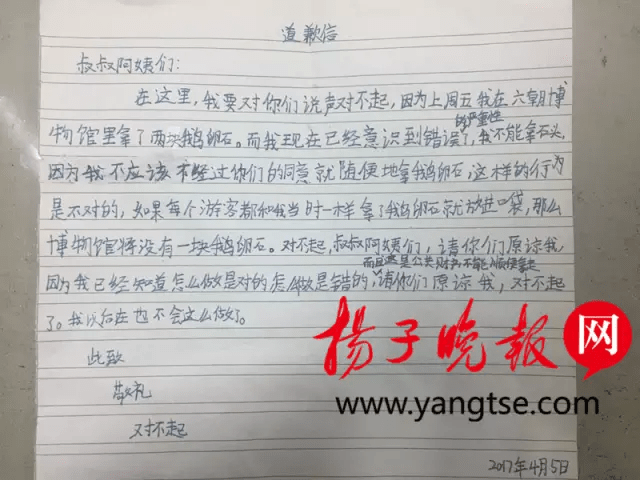 道歉信
叔叔阿姨们：
在这里，我要对你们说声对不起，因为上周五我在六朝博
物馆里拿了两块鹅卵石。而我现在已经意识到错误了，我不能拿石头，
的严重性
因为我不应该不经过你们的同意就随便地拿鹅卵石，这样的行为
是不对的，如果每个游客都和我当时一样拿了鹅卵石就放进口袋，那么
博物馆将没有一块鹅卵石。对不起，叔叔阿姨们，请你们原谅我，
而且这是公共财物不能顺便拿走
因为我已经知道怎么做是对的怎么做是错的，请你们原谅我，对不起
了。我以后在也不会这么做了。
此致
敬礼
对不起
2017年4月5日
扬子晚报网
www.yangtse.com